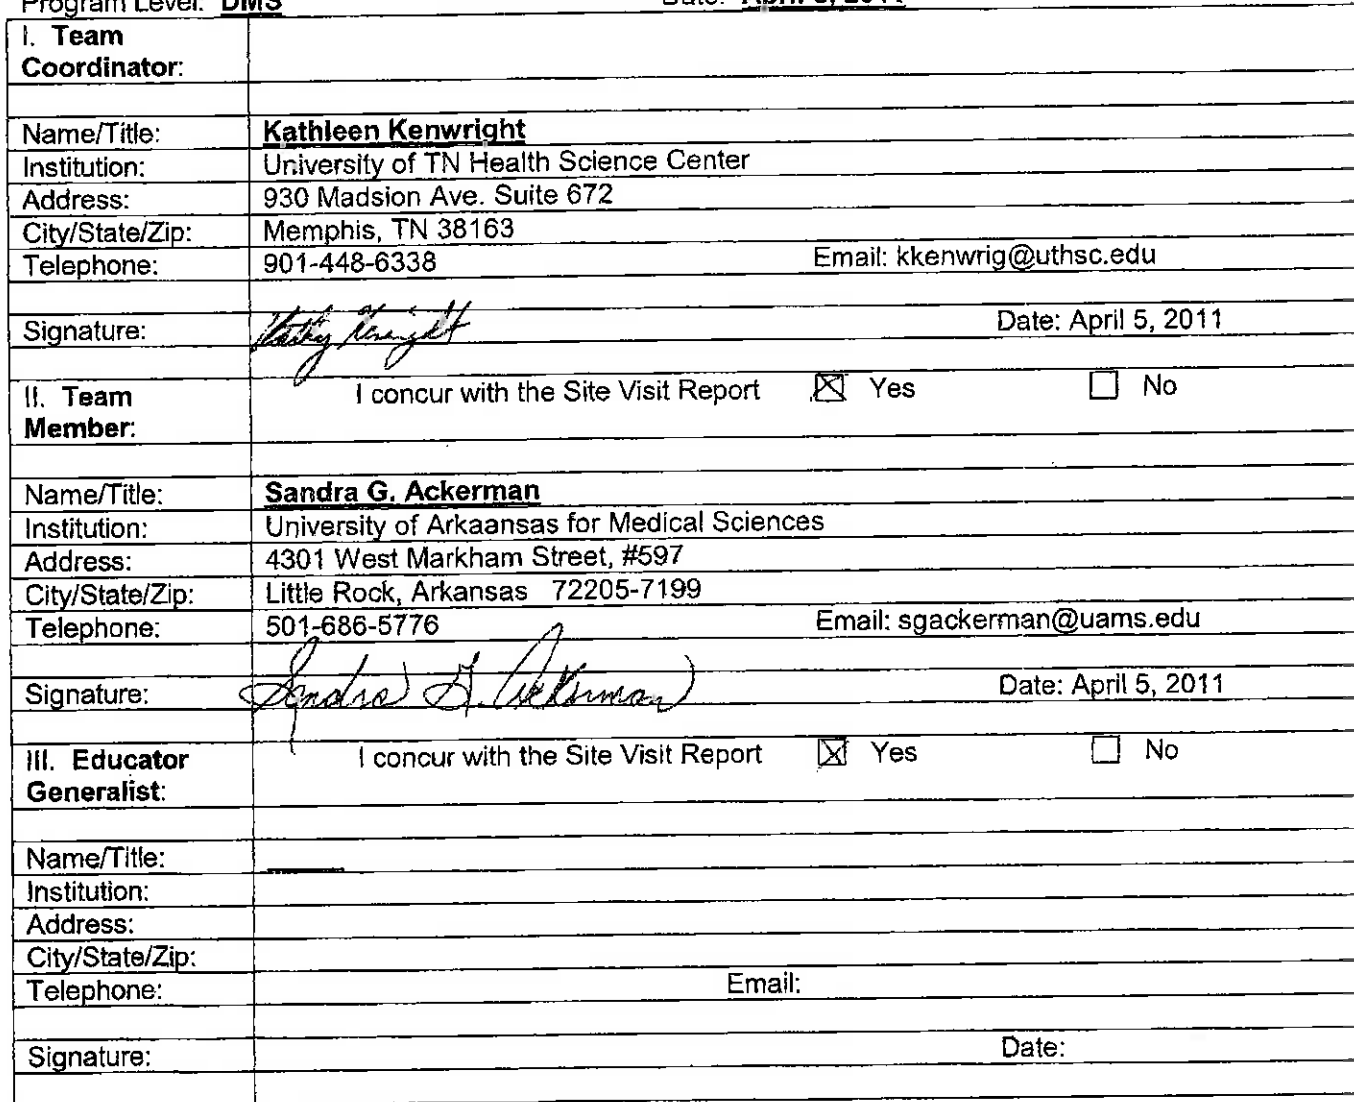 Program Level: DMS Date: April 5, 2011
I. Team
Coordinator:
Name/Title: Kathleen Kenwright
Institution: University of TN Health Science Center
Address: 930 Madsion Ave. Suite 672
City/State/Zip: Memphis, TN 38163
Telephone: 901-448-6338 Email: kkenwrig@uthsc.edu
Signature: Date: April 5, 2011
II. Team I concur with the Site Visit Report ☒ Yes ☐ No
Member:
Name/Title: Sandra G. Ackerman
Institution: University of Arkaansas for Medical Sciences
Address: 4301 West Markham Street, #597
City/State/Zip: Little Rock, Arkansas 72205-7199
Telephone: 501-686-5776 Email: sgackerman@uams.edu
Signature: Sandra G. Ackerman Date: April 5, 2011
III. Educator I concur with the Site Visit Report ☒ Yes ☐ No
Generalist:
Name/Title:
Institution:
Address:
City/State/Zip:
Telephone: Email:
Signature: Date: